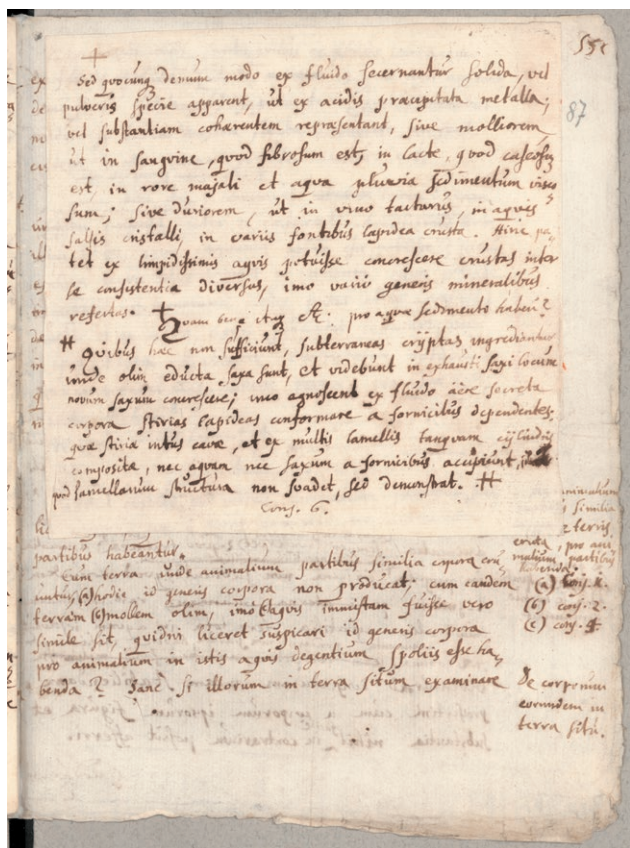 55
87
Sed quocunq demum modo ex fluido secernantur solida, vel
pulveris specie apparent, ut ex acidis præcipitata metalla;
vel substantiam cohærentem repræsentant, sive molliorem
ut in sanguine, quod fibrosum est, in lacte, quod caseosũ
est, in rore majali et aqua pluvia sedimentum visco
sum; sive duriorem, ut in vino tartarus, in aquis
salsis cristalli, in variis fontibus lapidea crusta. Hinc pa
tet ex limpidissimis aquis potuisse concrescere crustas inter
se consistentia diversas, imo varii generis mineralibus
refertas. Quam bene itaq &c: pro aquæ sedimento haberi?
# Quibus hæc non sufficiunt, subterraneas cryptas ingrediantur
unde olim educta saxa sunt, et videbunt in exhausti saxi locum
novum saxum concrescere; imo agnoscent ex fluido aëre secreta
corpora stirias lapideas conformare a fornicibus dependentes,
quæ stiriæ intus cavæ, et ex multis lamellis tanquam cylindris
compositæ, nec aquam nec saxum a fornicibus accipiunt,
quod lamellarum structura non suadet, sed demonstrat. #
Conj. 6.
partibus habeantur.
Cum terra unde animalium partibus similia corpora eru
untur, (a) hodie id generis corpora non producat; cum eandem
terram (b) mollem olim, imo (c) aquis immistam fuisse vero
simile sit, quidni liceret suspicari id generis corpora
pro animalium in istis aquis degentium spoliis esse ha,
benda? Sanè si illorum in terra situm examinare
animalium
similia
e terris
eruta, pro ani
malium partibus
habenda.
(a) Conj. 1.
(b) conj. 2.
(c) conj. 4.
De corporum
eorundem in
terra sitú.